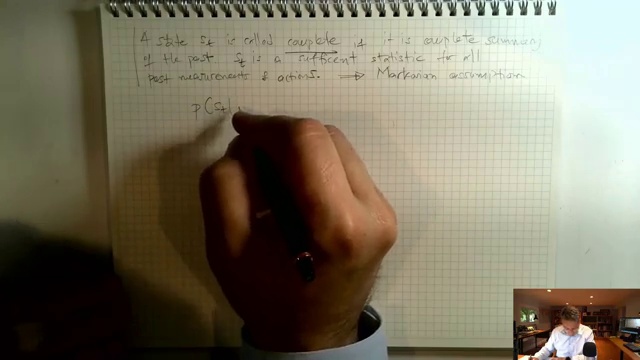 A state St is called complete if it is complete summary
of the past St is a sufficent statistic for all
past measurements & actions. ⟹ Markovian assumption
p(St|